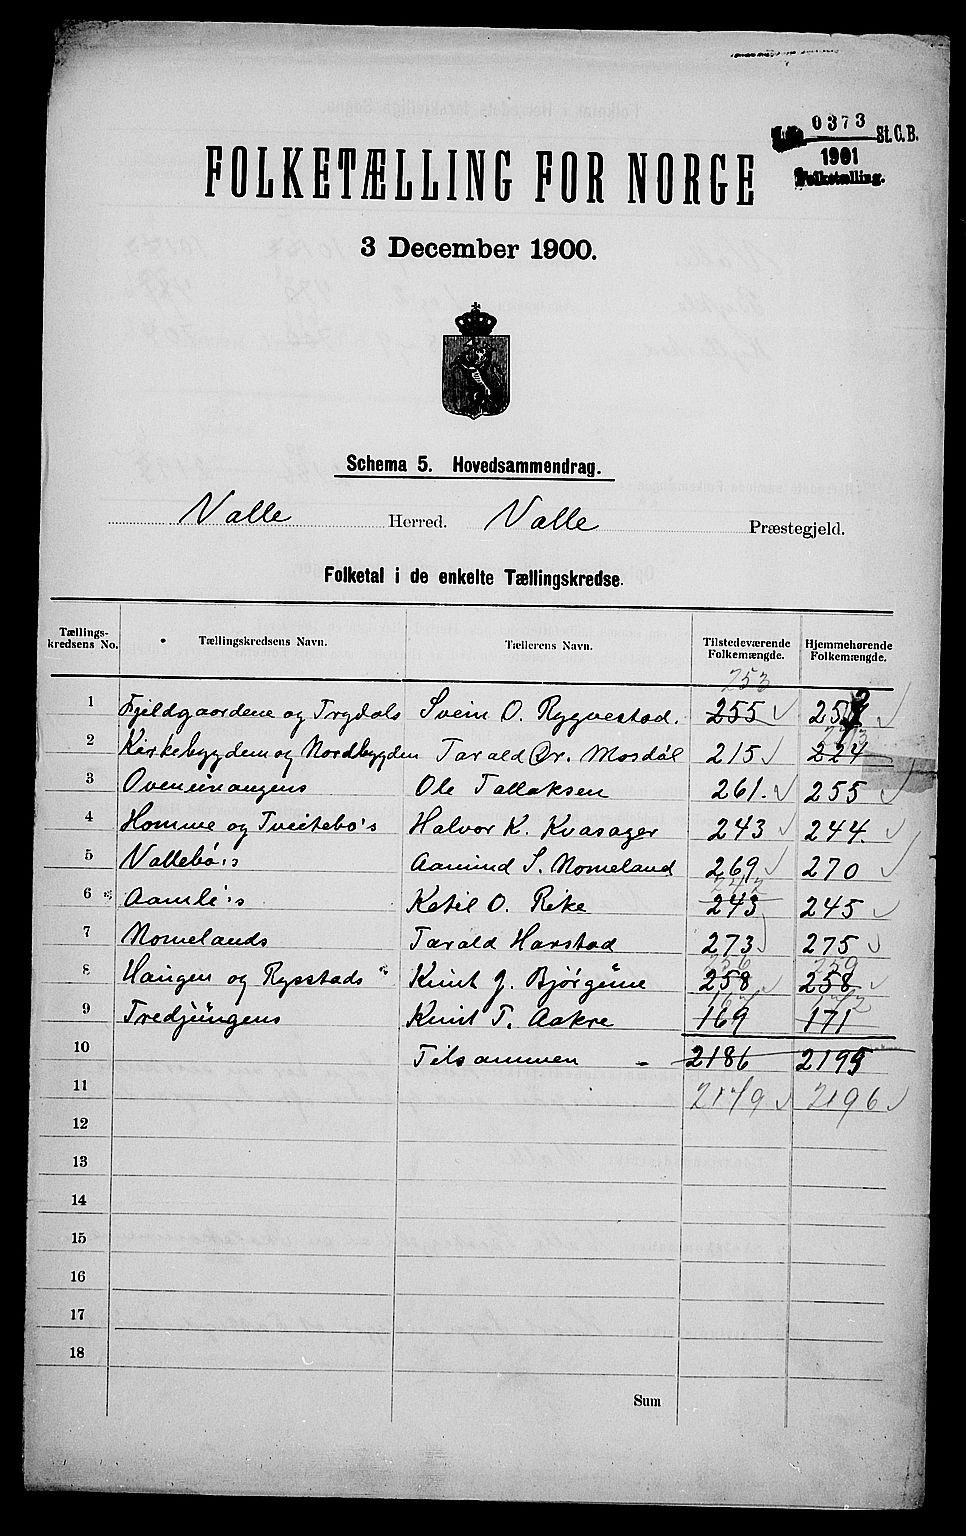 0373
St. C. B.
1901
Folketælling.
FOLKETÆLLING FOR NORGE
3 December 1900.
Schema 5. Hovedsammendrag.
Valle Herred. Valle Præstegjeld.
Folketal i de enkelte Tællingskredse.
Tællings-kredsens No. Tællingskredsens Navn. Tællerens Navn. Tilstedeværende Folkemængde. Hjemmehørende Folkemængde.
253
1 Fjeldgaardene og Trydals Svein O. Rygnestad. 255
2 Kirkebygden og Nordbygden Tarald Dr. Mosdøl 215
3 Ovenuvangens Ole Tallaksen 261. 255
4 Homme og Tveitebø's Halvor K. Kvasager 243 244.
5 Vallebø's Aamund S. Nomeland 269 270
242
6 Aamli's Ketil O. Rike 243 245
7 Nomelands Tarald Harstad 273 275
256 259
8 Haugen og Rysstads Knut J. Bjørgum 258 258
167 172
9 Tredjungens Knut T. Aakre 169 171
10 Tilsammen - 2186 2195
11 2179 2196
12
13
14
15
16
17
18
Sum